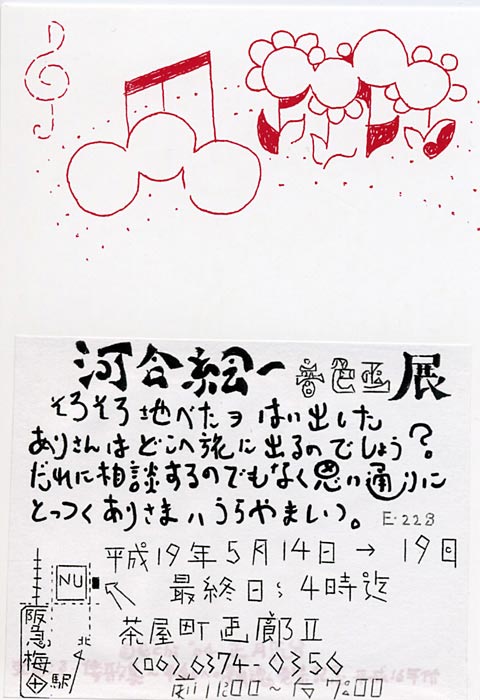 河合絵一 音色画 展
そろそろ地べたヲはい出した
ありさんはどこへ旅に出るのでしょう?
だれに相談するのでもなく思い通りに
とつつくありさまハうらやましい。 E-228
平成19年5月14日 → 19日
最終日;4時迄
NU
北
阪急梅田駅
茶屋町画廊Ⅱ
(06)6374-0356
前11:00〜后7:00